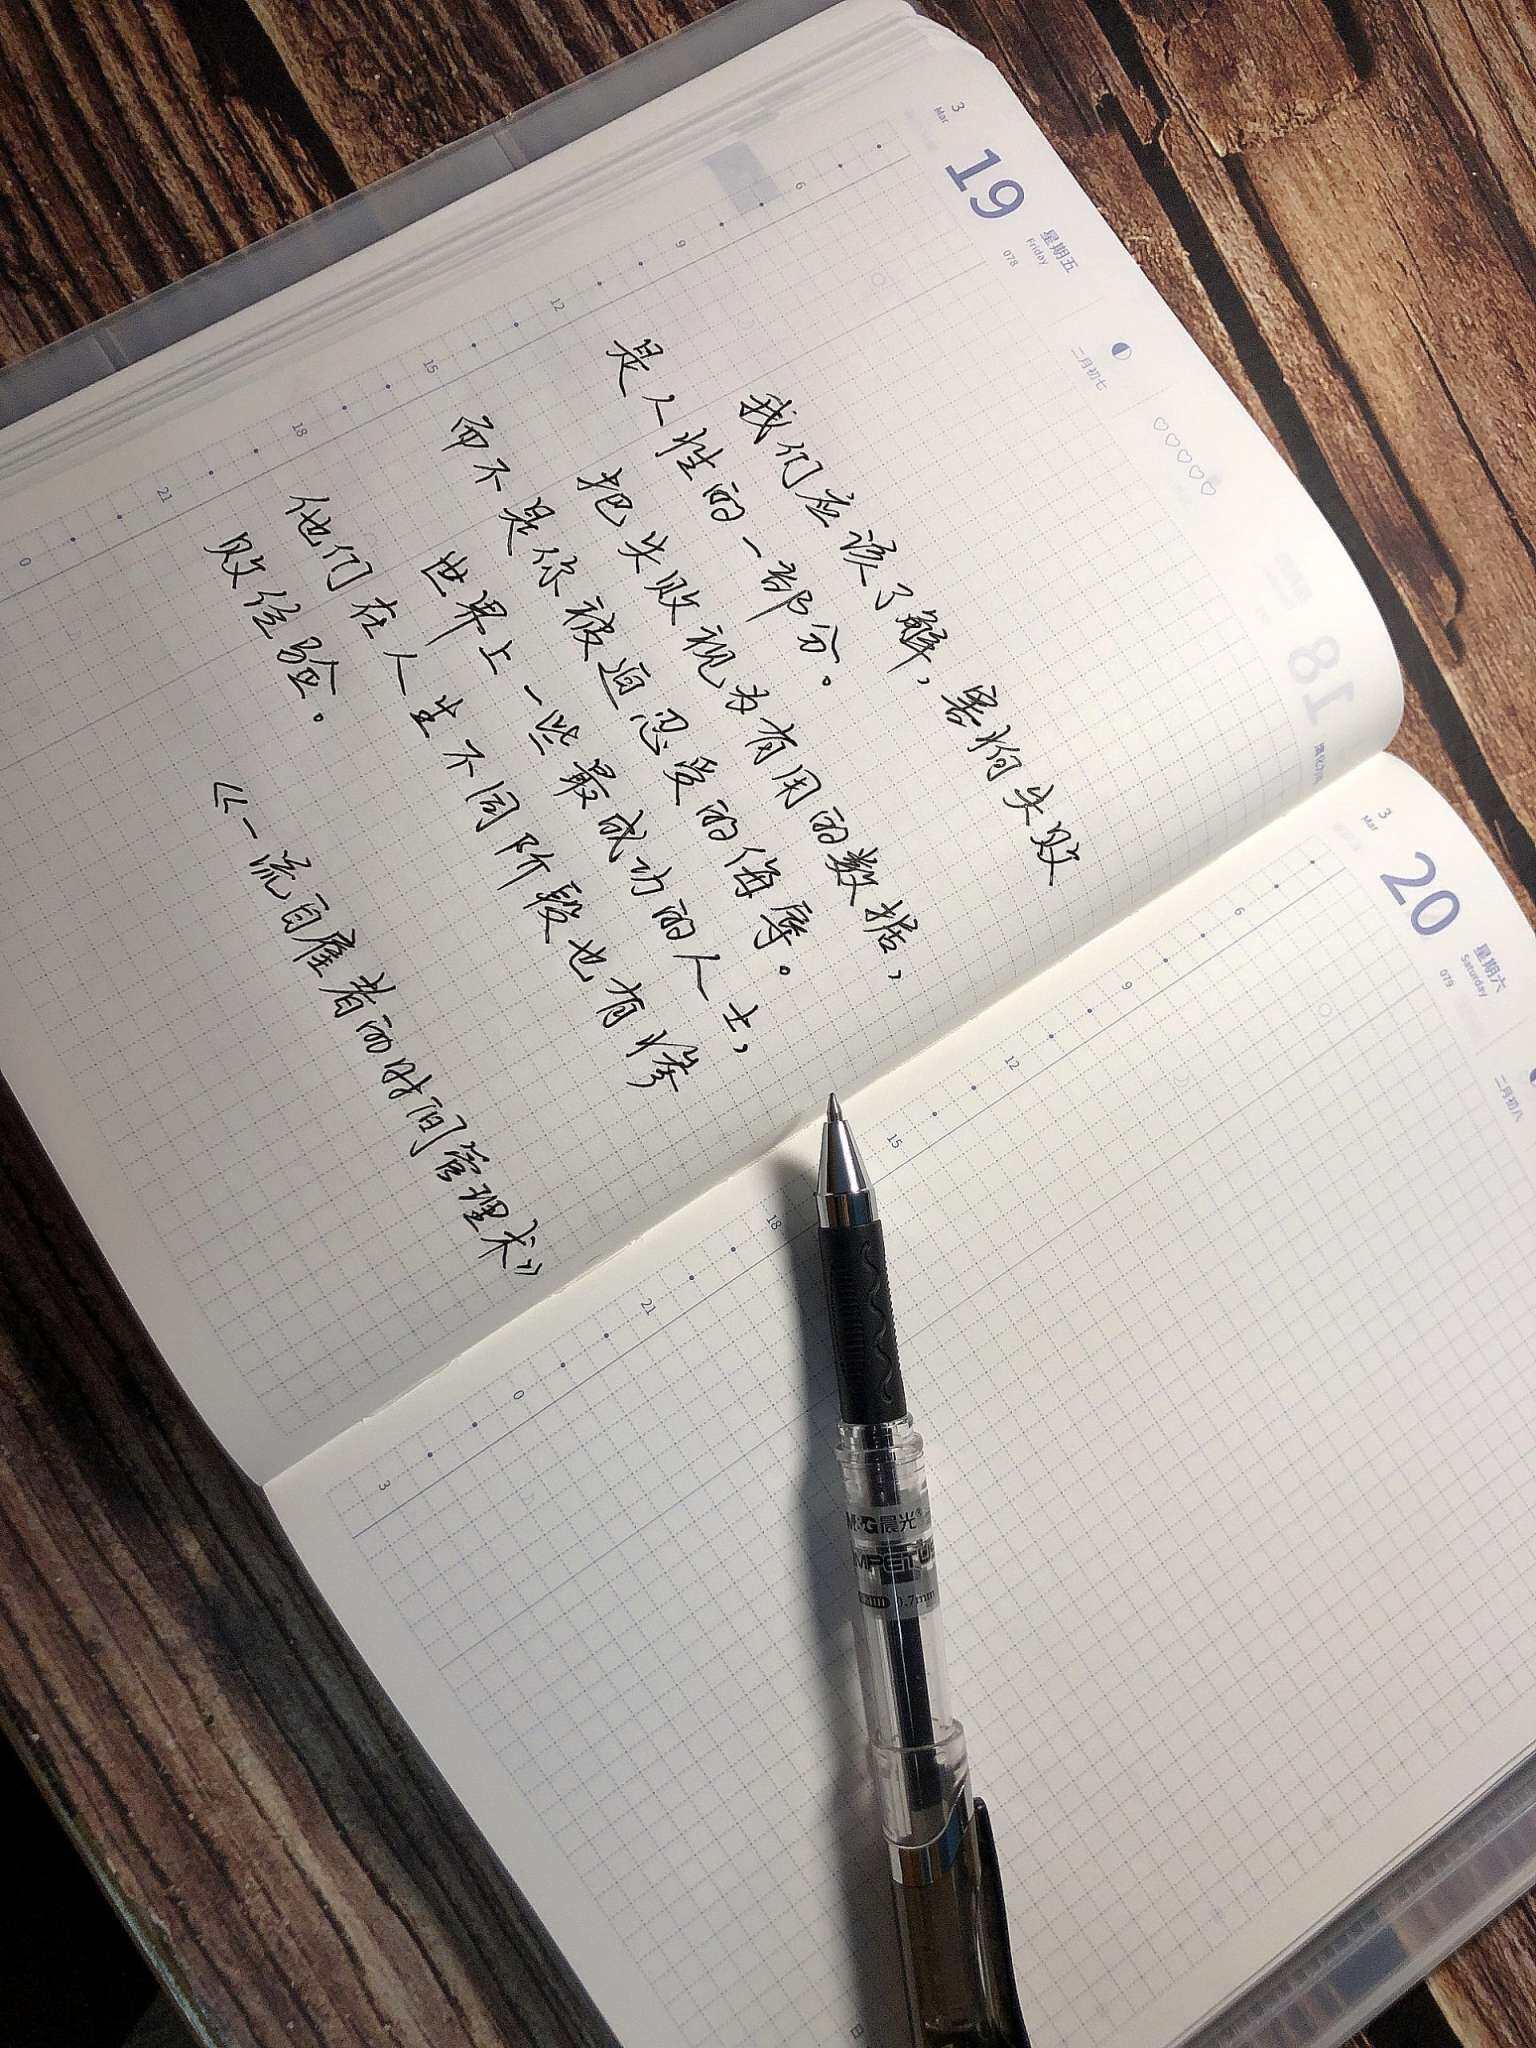 3
Mar
19
星期五
Friday
078
二月初七
6
9
12
15
18
21
0
我们应该了解，害怕失败
是人性的一部分。
把失败视为有用的数据，
而不是你被迫忍受的侮辱。
世界上一些最成功的人士，
他们在人生不同阶段也有惨
败经验。
《一流自雇者的时间管理术》
18
3
Mar
20
星期六
Saturday
079
二月初八
6
9
12
15
18
21
0
3
M&G晨光®
0.7mm